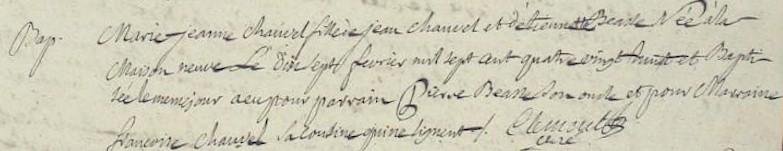 Bap. Marie jeanne chauvel fille de jean chauvel et d'étiennette Beasse Née à la
Maison neuve Le Dix sept fevrier mil sept cent quatre vingt huit et Bapti
sée le meme jour a eu pour parrain Pierre Beasse son oncle et pour Marraine
francoise chauvel sa cousine qui ne signent /.
curé